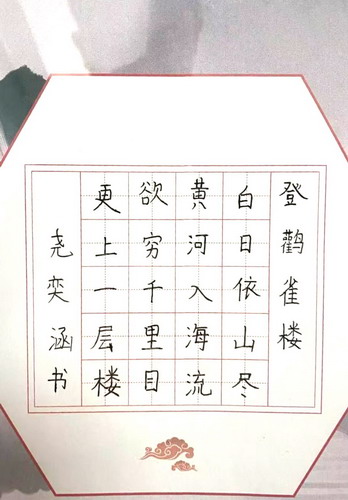 登鹳雀楼
白日依山尽
黄河入海流
欲穷千里目
更上一层楼
尧奕涵书